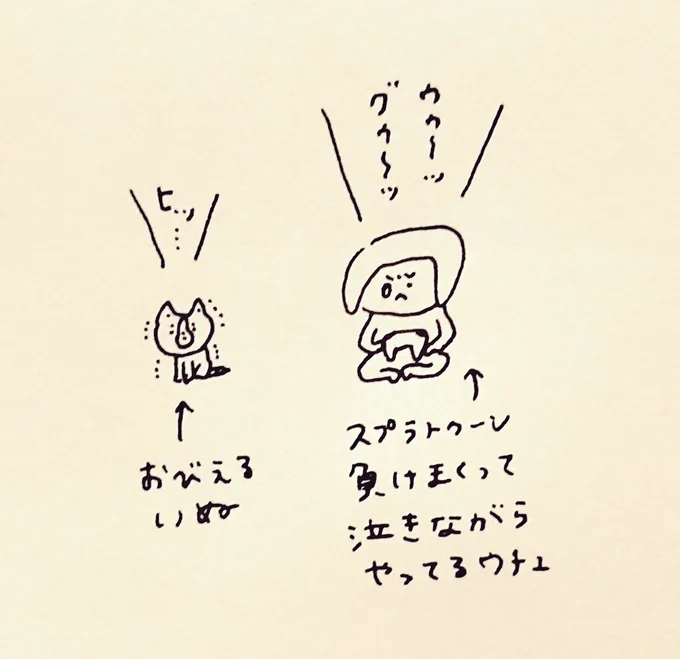 ウゥ〜ッ
グゥ〜ッ
ヒッ…
スプラトゥーン
負けまくって
泣きながら
やってるウチュ
おびえる
いぬ